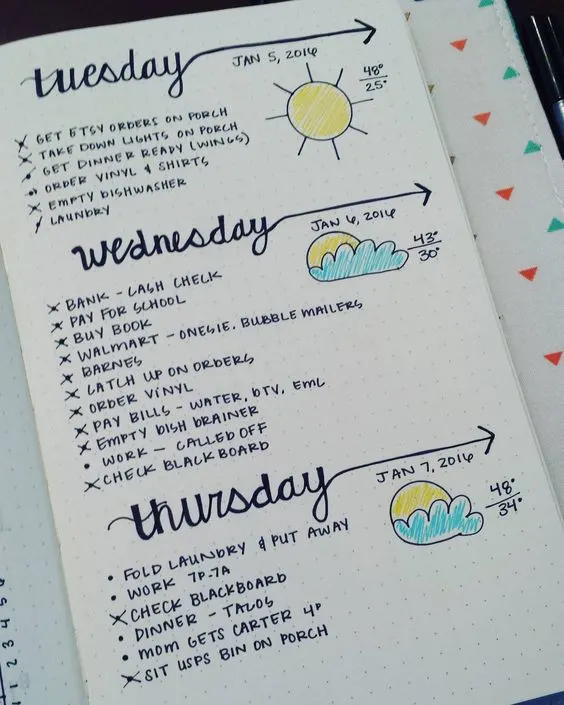 tuesday
JAN 5, 2016
48°
25°
GET ETSY ORDERS ON PORCH
TAKE DOWN LIGHTS ON PORCH
GET DINNER READY (WINGS)
ORDER VINYL & SHIRTS
EMPTY DISHWASHER
LAUNDRY
wednesday
JAN 6, 2016
43°
30°
BANK - CASH CHECK
PAY FOR SCHOOL
BUY BOOK
WALMART - ONESIE, BUBBLE MAILERS
BARNES
CATCH UP ON ORDERS
ORDER VINYL
PAY BILLS - WATER, DTV, EML
EMPTY DISH DRAINER
WORK - CALLED OFF
CHECK BLACKBOARD
thursday
JAN 7, 2016
48°
34°
FOLD LAUNDRY & PUT AWAY
WORK 7P-7A
CHECK BLACKBOARD
DINNER - TACOS
MOM GETS CARTER 4P
SIT USPS BIN ON PORCH
1 2 3 4 5